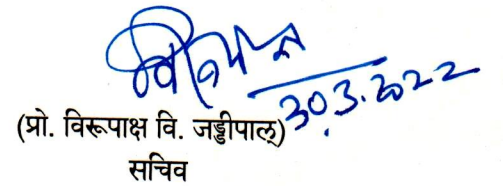 30.3.2022
(प्रो. विरूपाक्ष वि. जड्डीपाल्)
सचिव